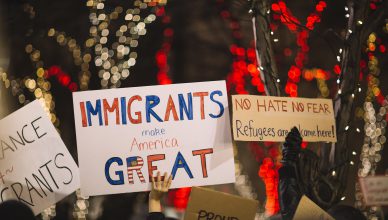 ANCE
GRANTS
IMMIGRANTS
make
America
GREAT
NO HATE NO FEAR
Refugees are welcome here!
PROUD